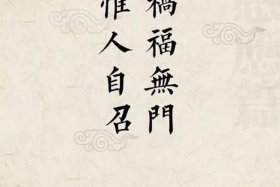 禍福無門
惟人自召